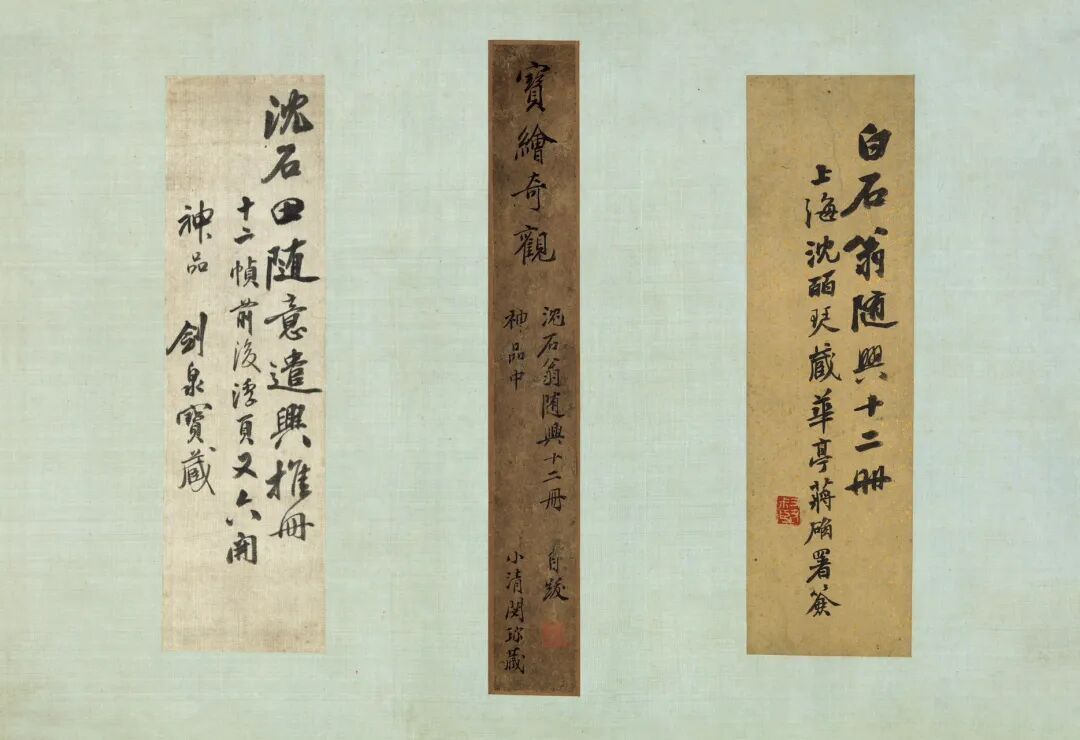 白石翁随興十二冊
上海沈酩琹藏華亭蔣確署簽
寶繪奇觀
沈石翁随興十二冊 自跋
神品中 小清閟珍藏
沈石田随意遣興推冊
十二幀前後浮頁又六開
神品 劍泉寶藏